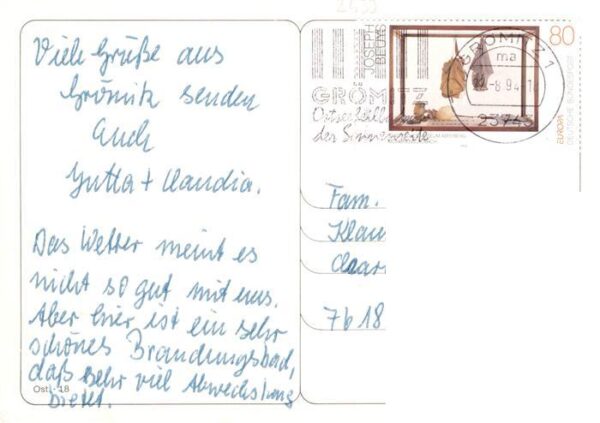 Viele Grüße aus
Grömitz senden
Euch
Jutta + Claudia.
Das Wetter meint es
nicht so gut mit uns.
Aber hier ist ein sehr
schönes Brandungsbad,
daß sehr viel Abwechslung
bietet.
Ostl. 18
JOSEPH
BEUYS
80
EUROPA
DEUTSCHE BUNDESPOST
GRÖMITZ
Ostseeheilbad
der Sonnenseite
GRÖMITZ 1
ma
-8.94-
23743
Fam.
Klau
7b 18